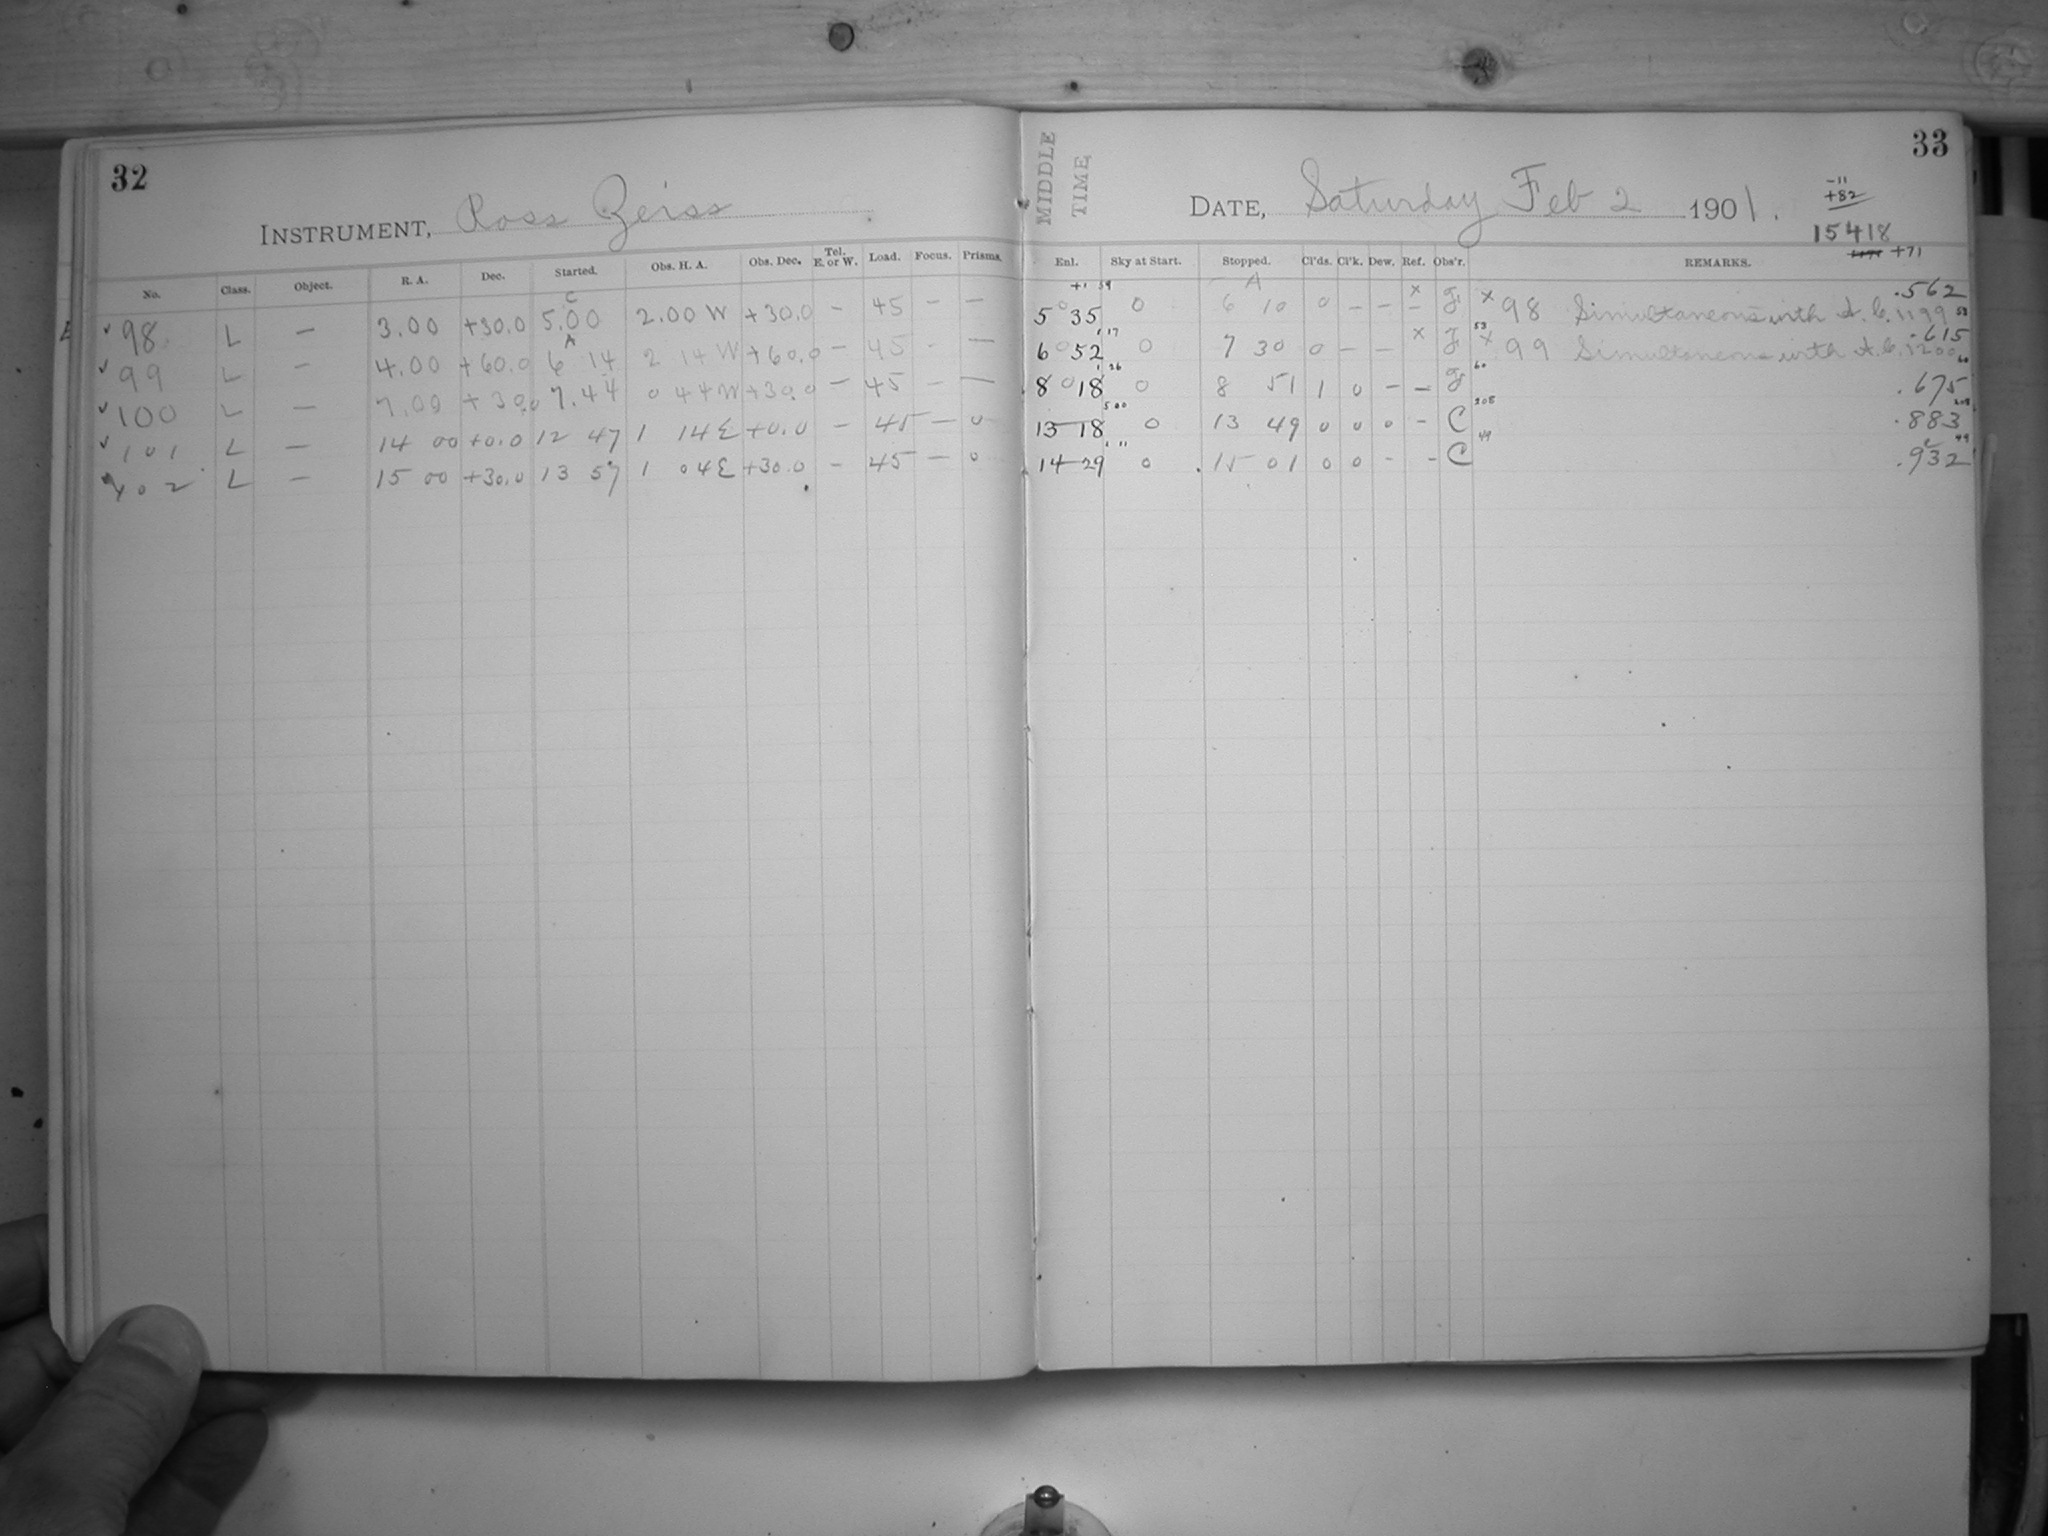 32
INSTRUMENT, Ross Zeiss
No. Class. Object. R. A. Dec. Started. Obs. H. A. Obs. Dec. Tel. E. or W. Load. Focus. Prisms.
C
98 L — 3.00 +30.0 5.00 2.00 W +30.0 — 45 — —
A
99 L — 4.00 +60.0 6 14 2 14 W +60.0 — 45 - —
100 L — 7.00 +30.0 7.44 0 44 W +30.0 — 45 — —
101 L — 14 00 +0.0 12 47 1 14 E +0.0 - 45 — 0
102 L — 15 00 +30.0 13 57 1 04 E +30.0 - 45 — 0
33
MIDDLE TIME
DATE, Saturday Feb 2 1901.
-11
+82
15418
+71
Enl. Sky at Start. Stopped. Cl'ds. Cl'k. Dew. Ref. Obs'r. REMARKS.
+1 59 A × .562
5 35 0 6 10 0 — — — F × 98 Simultaneous with A.C. 1199 53
1 17 × 53 .615
6 52 0 7 30 0 — — F × 99 Simultaneous with A.C. 1200 60
1 26 60
8 18 0 8 51 1 0 — — F .675
5 00 208 208
13 18 0 13 49 0 0 0 - C .883
1 11 49 49
14 29 0 15 01 0 0 - - C .932